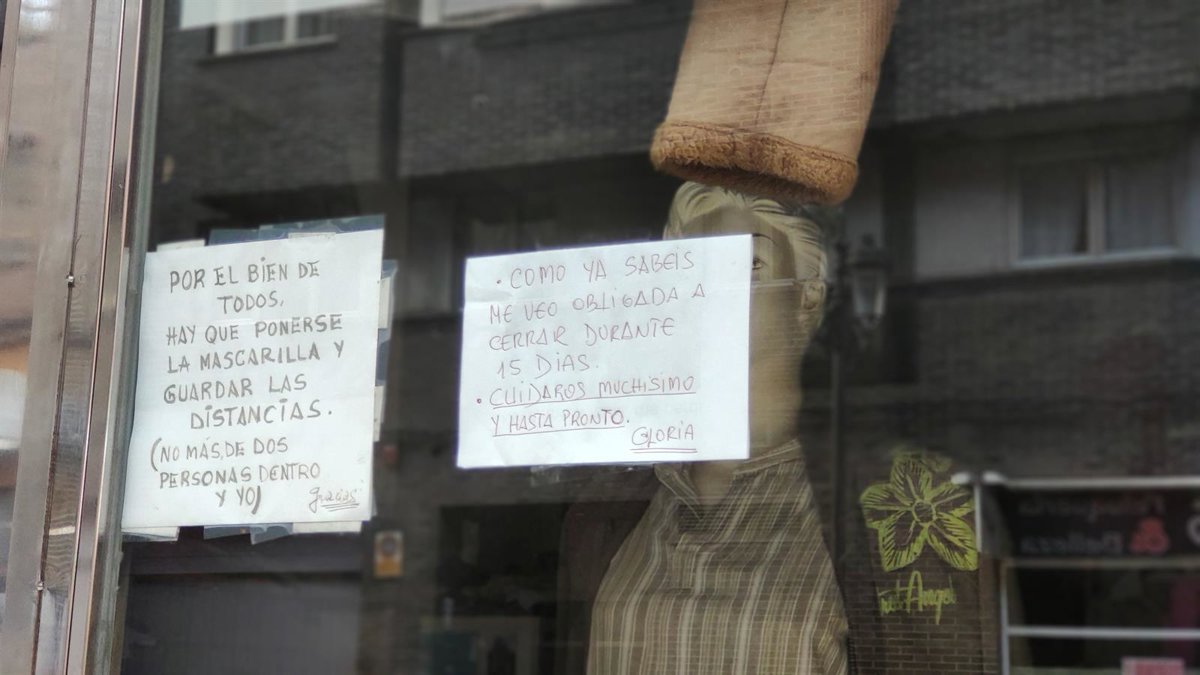 POR EL BIEN DE
TODOS,
HAY QUE PONERSE
LA MASCARILLA Y
GUARDAR LAS
DISTANCIAS.
(NO MÁS, DE DOS
PERSONAS DENTRO
Y YO)
gracias
• COMO YA SABEIS
ME VEO OBLIGADA A
CERRAR DURANTE
15 DIAS.
• CUIDAROS MUCHISIMO
Y HASTA PRONTO.
GLORIA
Belleza